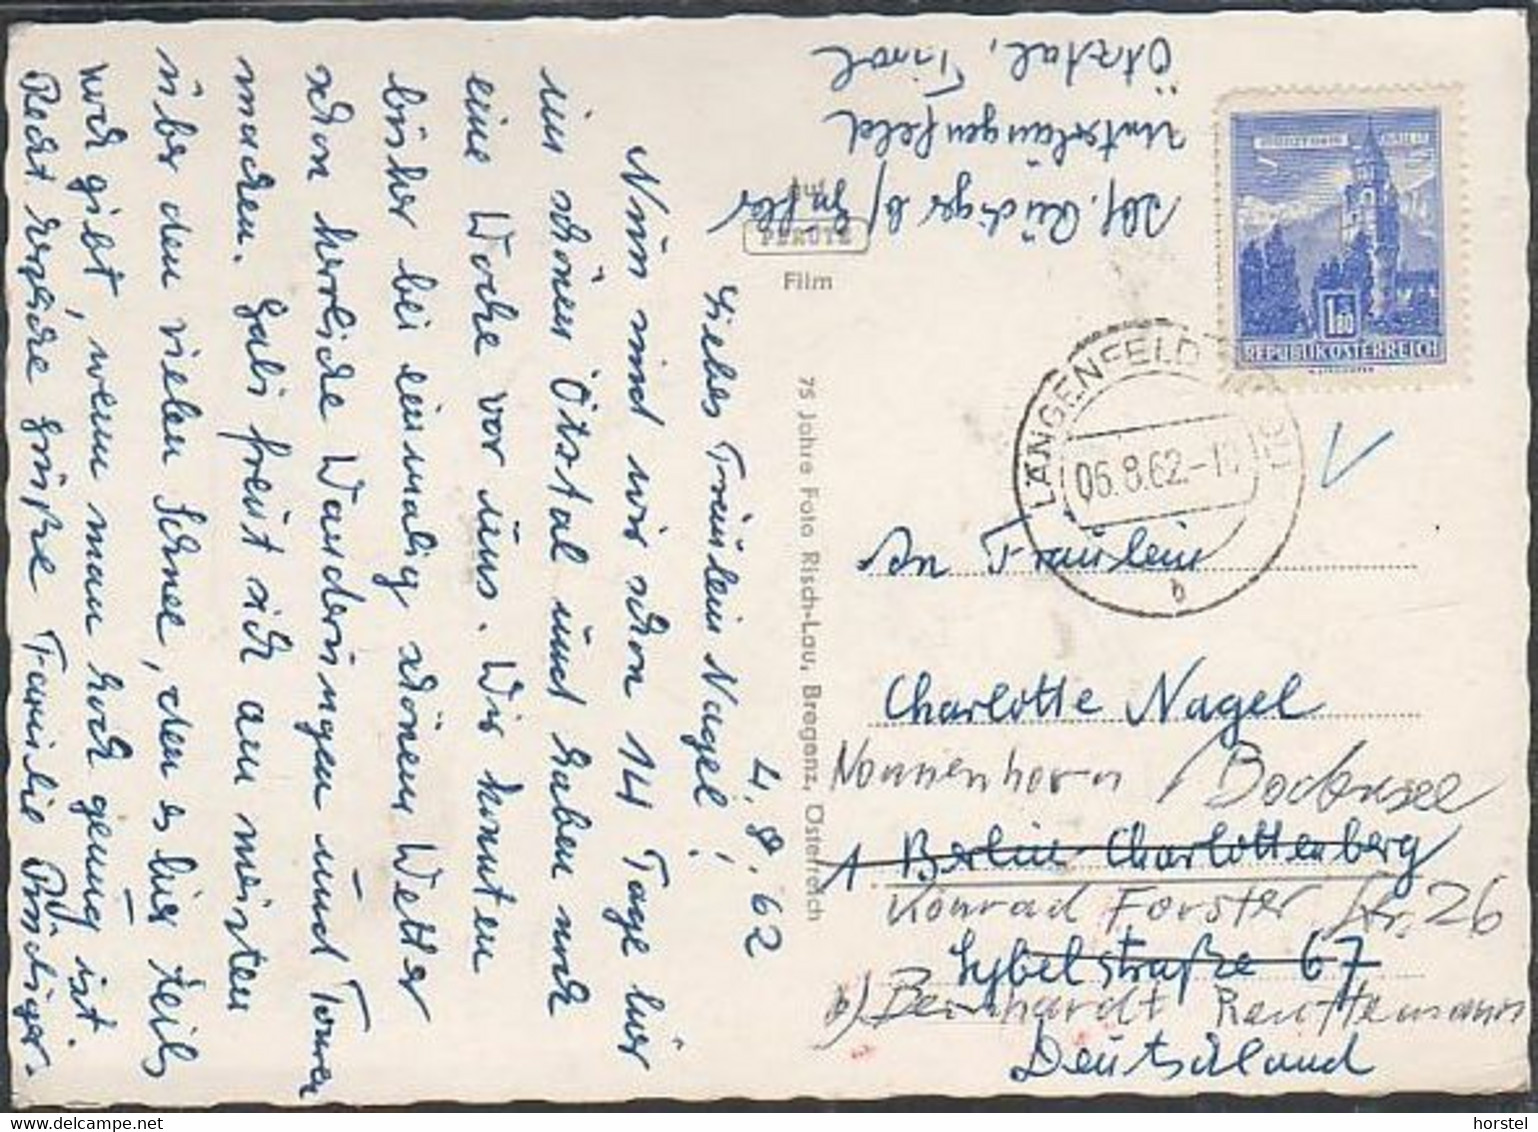 4.8.62
Liebes Fräulein Nagel!
Nun sind wir schon 14 Tage hier
im schönen Ötztal und haben noch
eine Woche vor uns. Wir konnten
bisher bei einmalig schönem Wetter
schon herrliche Wanderungen und Touren
machen. Gabi freut sich am meisten
über den vielen Schnee, den es hier teils
noch gibt, wenn man hoch genug ist.
Recht herzliche Grüße Familie Rüdiger.
Abs. Rüdiger b/
Unterlängenfeld
Ötztal, Tirol
auf
PERUTZ
Film
75 Jahre Foto Risch-Lau, Bregenz, Österreich
1.80
REPUBLIK ÖSTERREICH
LÄNGENFELD
06.8.62
b
An Fräulein
Charlotte Nagel
Nonnenhorn / Bodensee
1 Berlin-Charlottenberg
Konrad Forster Str. 26
Sybelstraße 67
b) Bernhardt
Deutschland
horstel